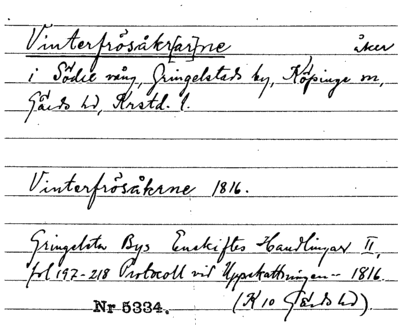 Vinterfrösåkr[ar]ne åker
i Södre vång, Gringelstads by, Köpinge sn,
Gärds hd, Krstd. l.
Vinterfrösåkrne 1816.
Gringelsta Bys Enskiftes Handlingar II,
fol 197-218 Protocoll vid Uppskattningen -- 1816.
(K 10 Gärds hd).
Nr 5334.